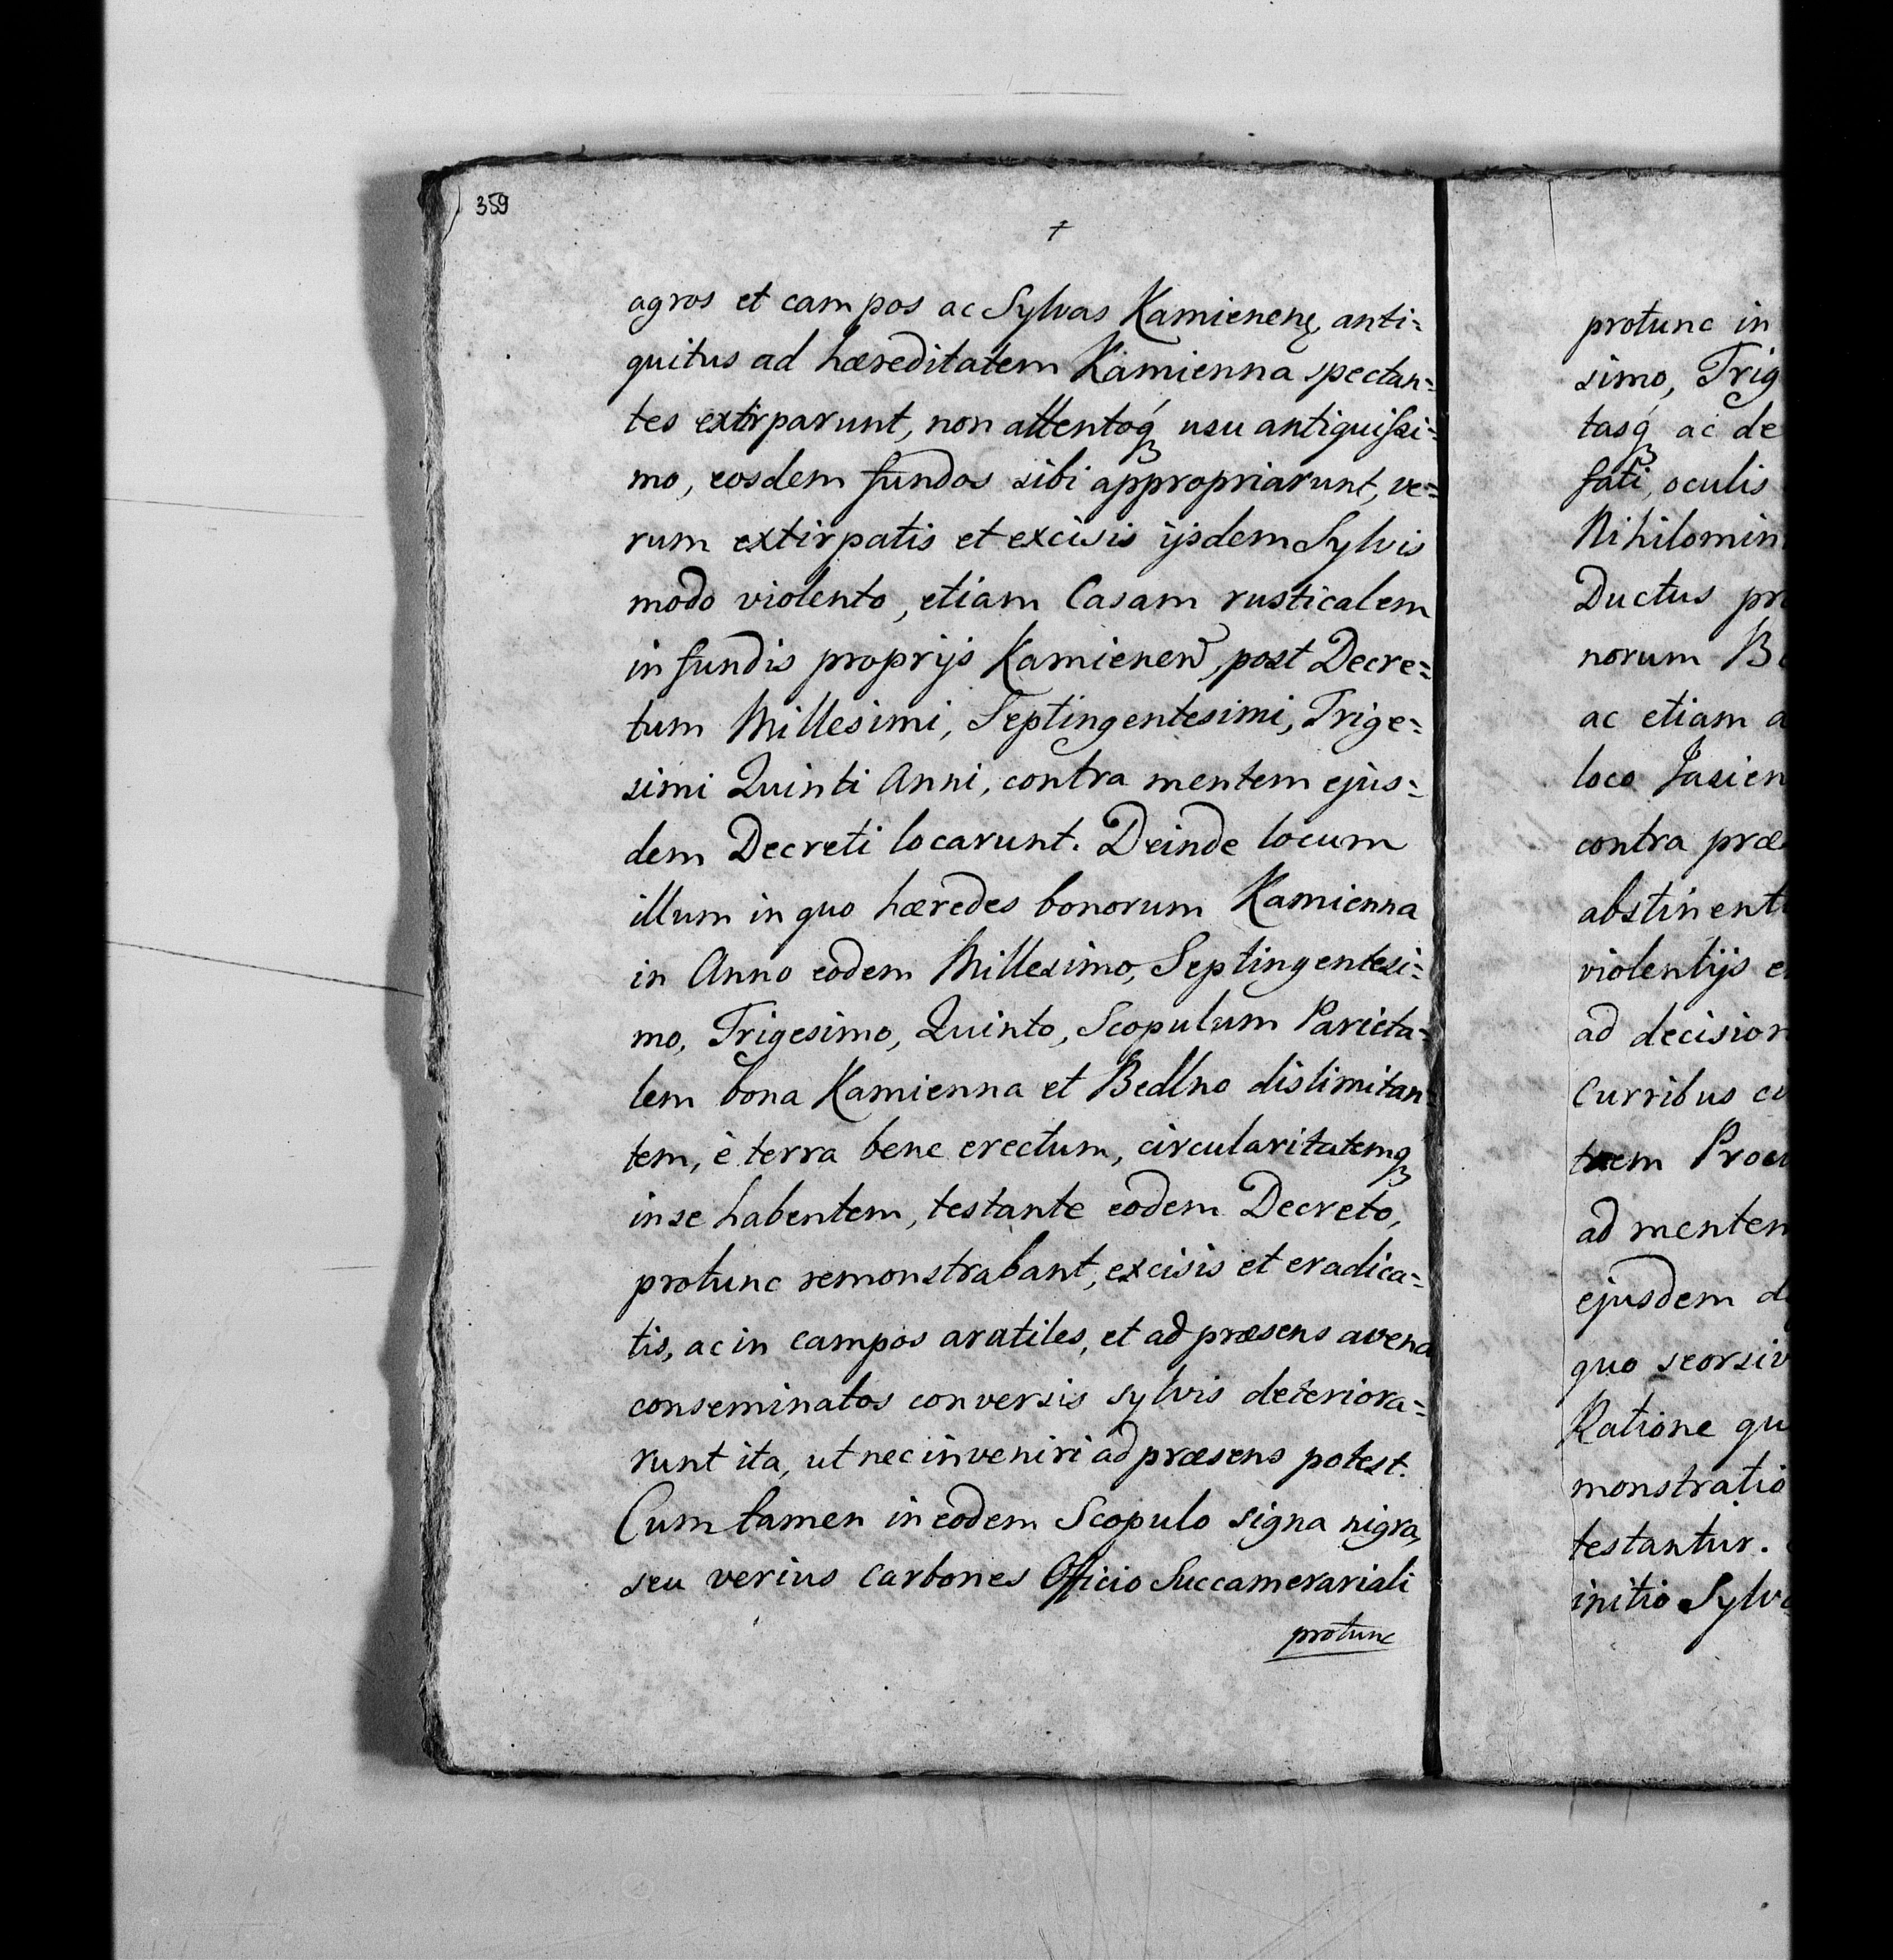 359
+
agros et campos ac Sylvas Kamienenę, anti=
quitus ad hæreditatem Kamienna spectan=
tes extirparunt, non attentoq́ꝫ usu antiquissi=
mo, eosdem fundos sibi appropriarunt, ve=
rum extirpatis et excisis ijsdem Sylvis
modo violento, etiam Casam rusticalem
in fundis proprijs Kamienen̄, post Decre=
tum Millesimi, Septingentesimi, Trige=
simi Quinti Anni, contra mentem ejus=
dem Decreti locarunt. Deinde locum
illum in quo hæredes bonorum Kamienna
in Anno eodem Millesimo, Septingentesi=
mo, Trigesimo, Quinto, Scopulum Parieta=
lem bona Kamienna et Bedlno dislimitan=
tem, è terra bene erectum, circularitatemqꝫ
in se habentem, testante eodem Decreto,
protunc remonstrabant, excisis et eradica=
tis, ac in campos aratiles, et ad præsens avena
conseminatos conversis sylvis deteriora=
runt ita, ut nec inveniri ad præsens potest.
Cum tamen in eodem Scopulo signa nigra,
seu verius carbones Officio Succamerariali
protunc
protunc in
simo, Trig
tasq́ꝫ ac de
fati, oculis
Nihilomin
Ductus pr
norum B
ac etiam a
loco Jasien
contra præ
abstinent
violentijs e
ad decision
Curribus co
tem Proc
ad mentem
ejusdem d
quo seorsiv
Ratione qu
monstratio
testantur.
initio Sylv